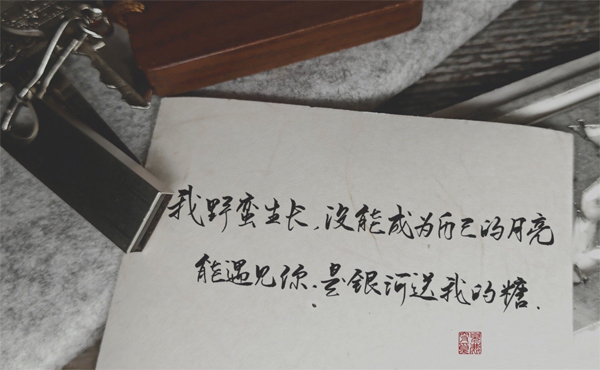 我野蛮生长,没能成为自己的月亮
能遇见你,是银河送我的糖.